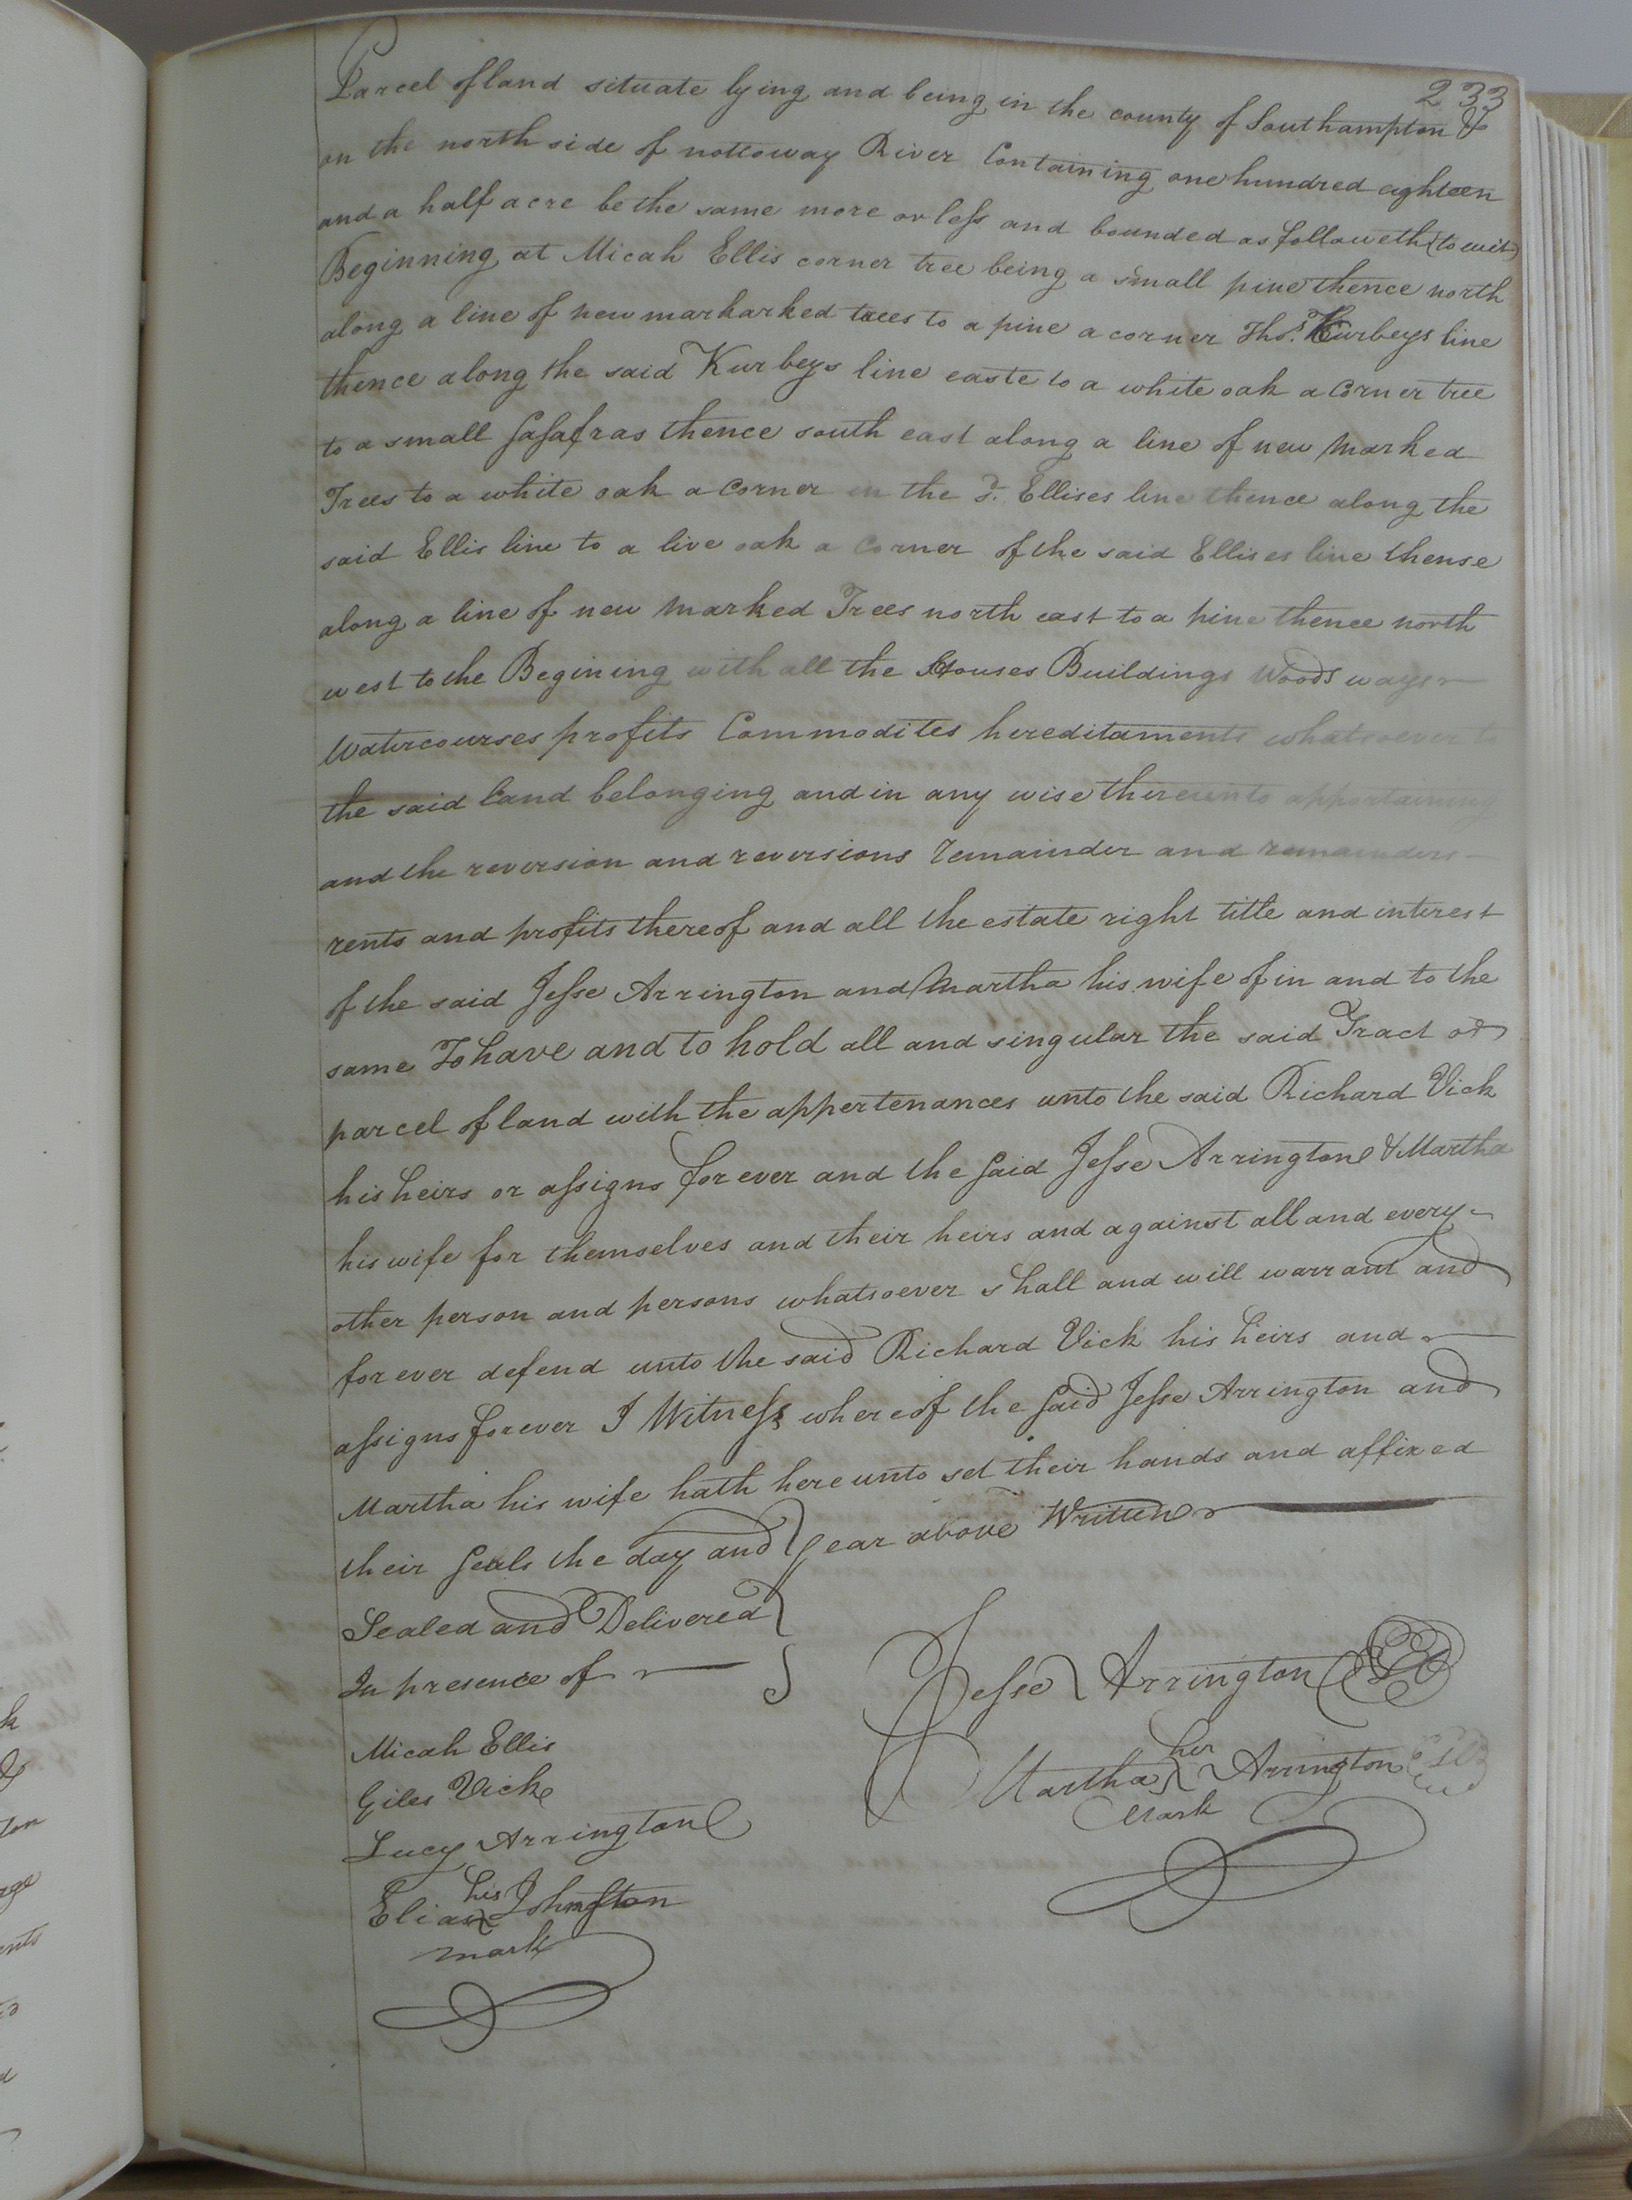 233
Parcel of land situate lying and being in the county of Southampton &
on the north side of nottoway River Containing one hundred eighteen
and a half acre be the same more or less and bounded as followeth (to wit)
Beginning at Micah Ellis corner tree being a small pine thence north
along a line of new markarked trees to a pine a corner Thos. Kurbeys line
thence along the said Kurbeys line easte to a white oak a Corner tree
to a small Sasafras thence south east along a line of new Marked
Trees to a white oak a Corner in the sd. Ellises line thence along the
said Ellis line to a live oak a Corner of the said Ellises line thense
along a line of new Marked Trees north east to a pine thence north
west to the Begining with all the Houses Buildings Woods ways
Watercourses profits Commodites hereditaments whatsoever to
the said Land belonging and in any wise thereunto appertaining
and the reversion and reversions Remainder and remainders
rents and profits thereof and all the estate right title and interest
of the said Jesse Arrington and Martha his wife of in and to the
same To have and to hold all and singular the said Tract or
parcel of land with the appertenances unto the said Richard Vick
his heirs or assigns for ever and the Said Jesse Arrington & Martha
his wife for themselves and their heirs and against all and every
other person and persons whatsoever shall and will warrant and
for ever defend unto the said Richard Vick his heirs and
assigns forever I Witness whereof the Said Jesse Arrington and
Martha his wife hath hereunto set their hands and affixed
their Seals the day and year above Written
Sealed and Delivered
In presence of
Jesse Arrington
Micah Ellis
her
Martha Arrington
Mark
Giles Vick
Lucy Arrington
his
Elias Johnston
mark